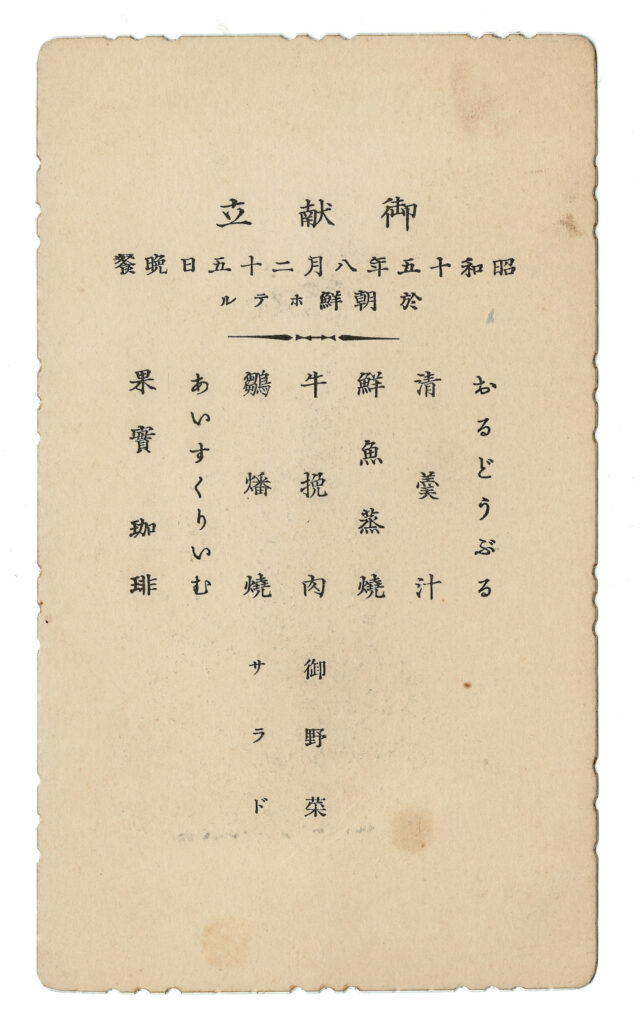 御献立
昭和十五年八月二十五日晩餐
於朝鮮ホテル
おるどうぶる
清羹汁
鮮魚蒸燒
牛挽肉 御野菜
鷄燔燒 サラド
あいすくりいむ
果實 珈琲